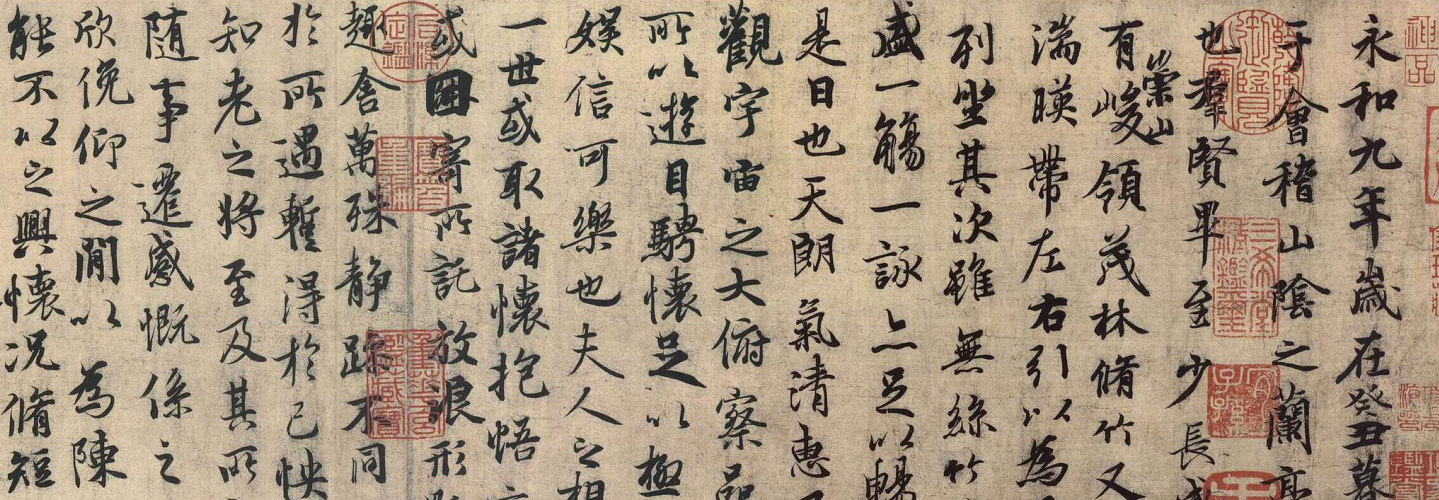 永和九年歲在癸丑
于會稽山陰之蘭亭
也羣賢畢至少長咸
有崇山峻領茂林脩竹又
湍暎帶左右引以為
列坐其次雖無絲竹
盛一觴一詠亦足以暢
是日也天朗氣清惠
觀宇宙之大俯察品
所以遊目騁懷足以極
娛信可樂也夫人之相
一世或取諸懷抱悟
或因寄所託放浪形
趣舍萬殊靜躁不同
於所遇蹔得於己怏
知老之將至及其所
隨事遷感慨係之
欣俛仰之間以為陳
能不以之興懷況脩短
神品
三希堂精鑑璽